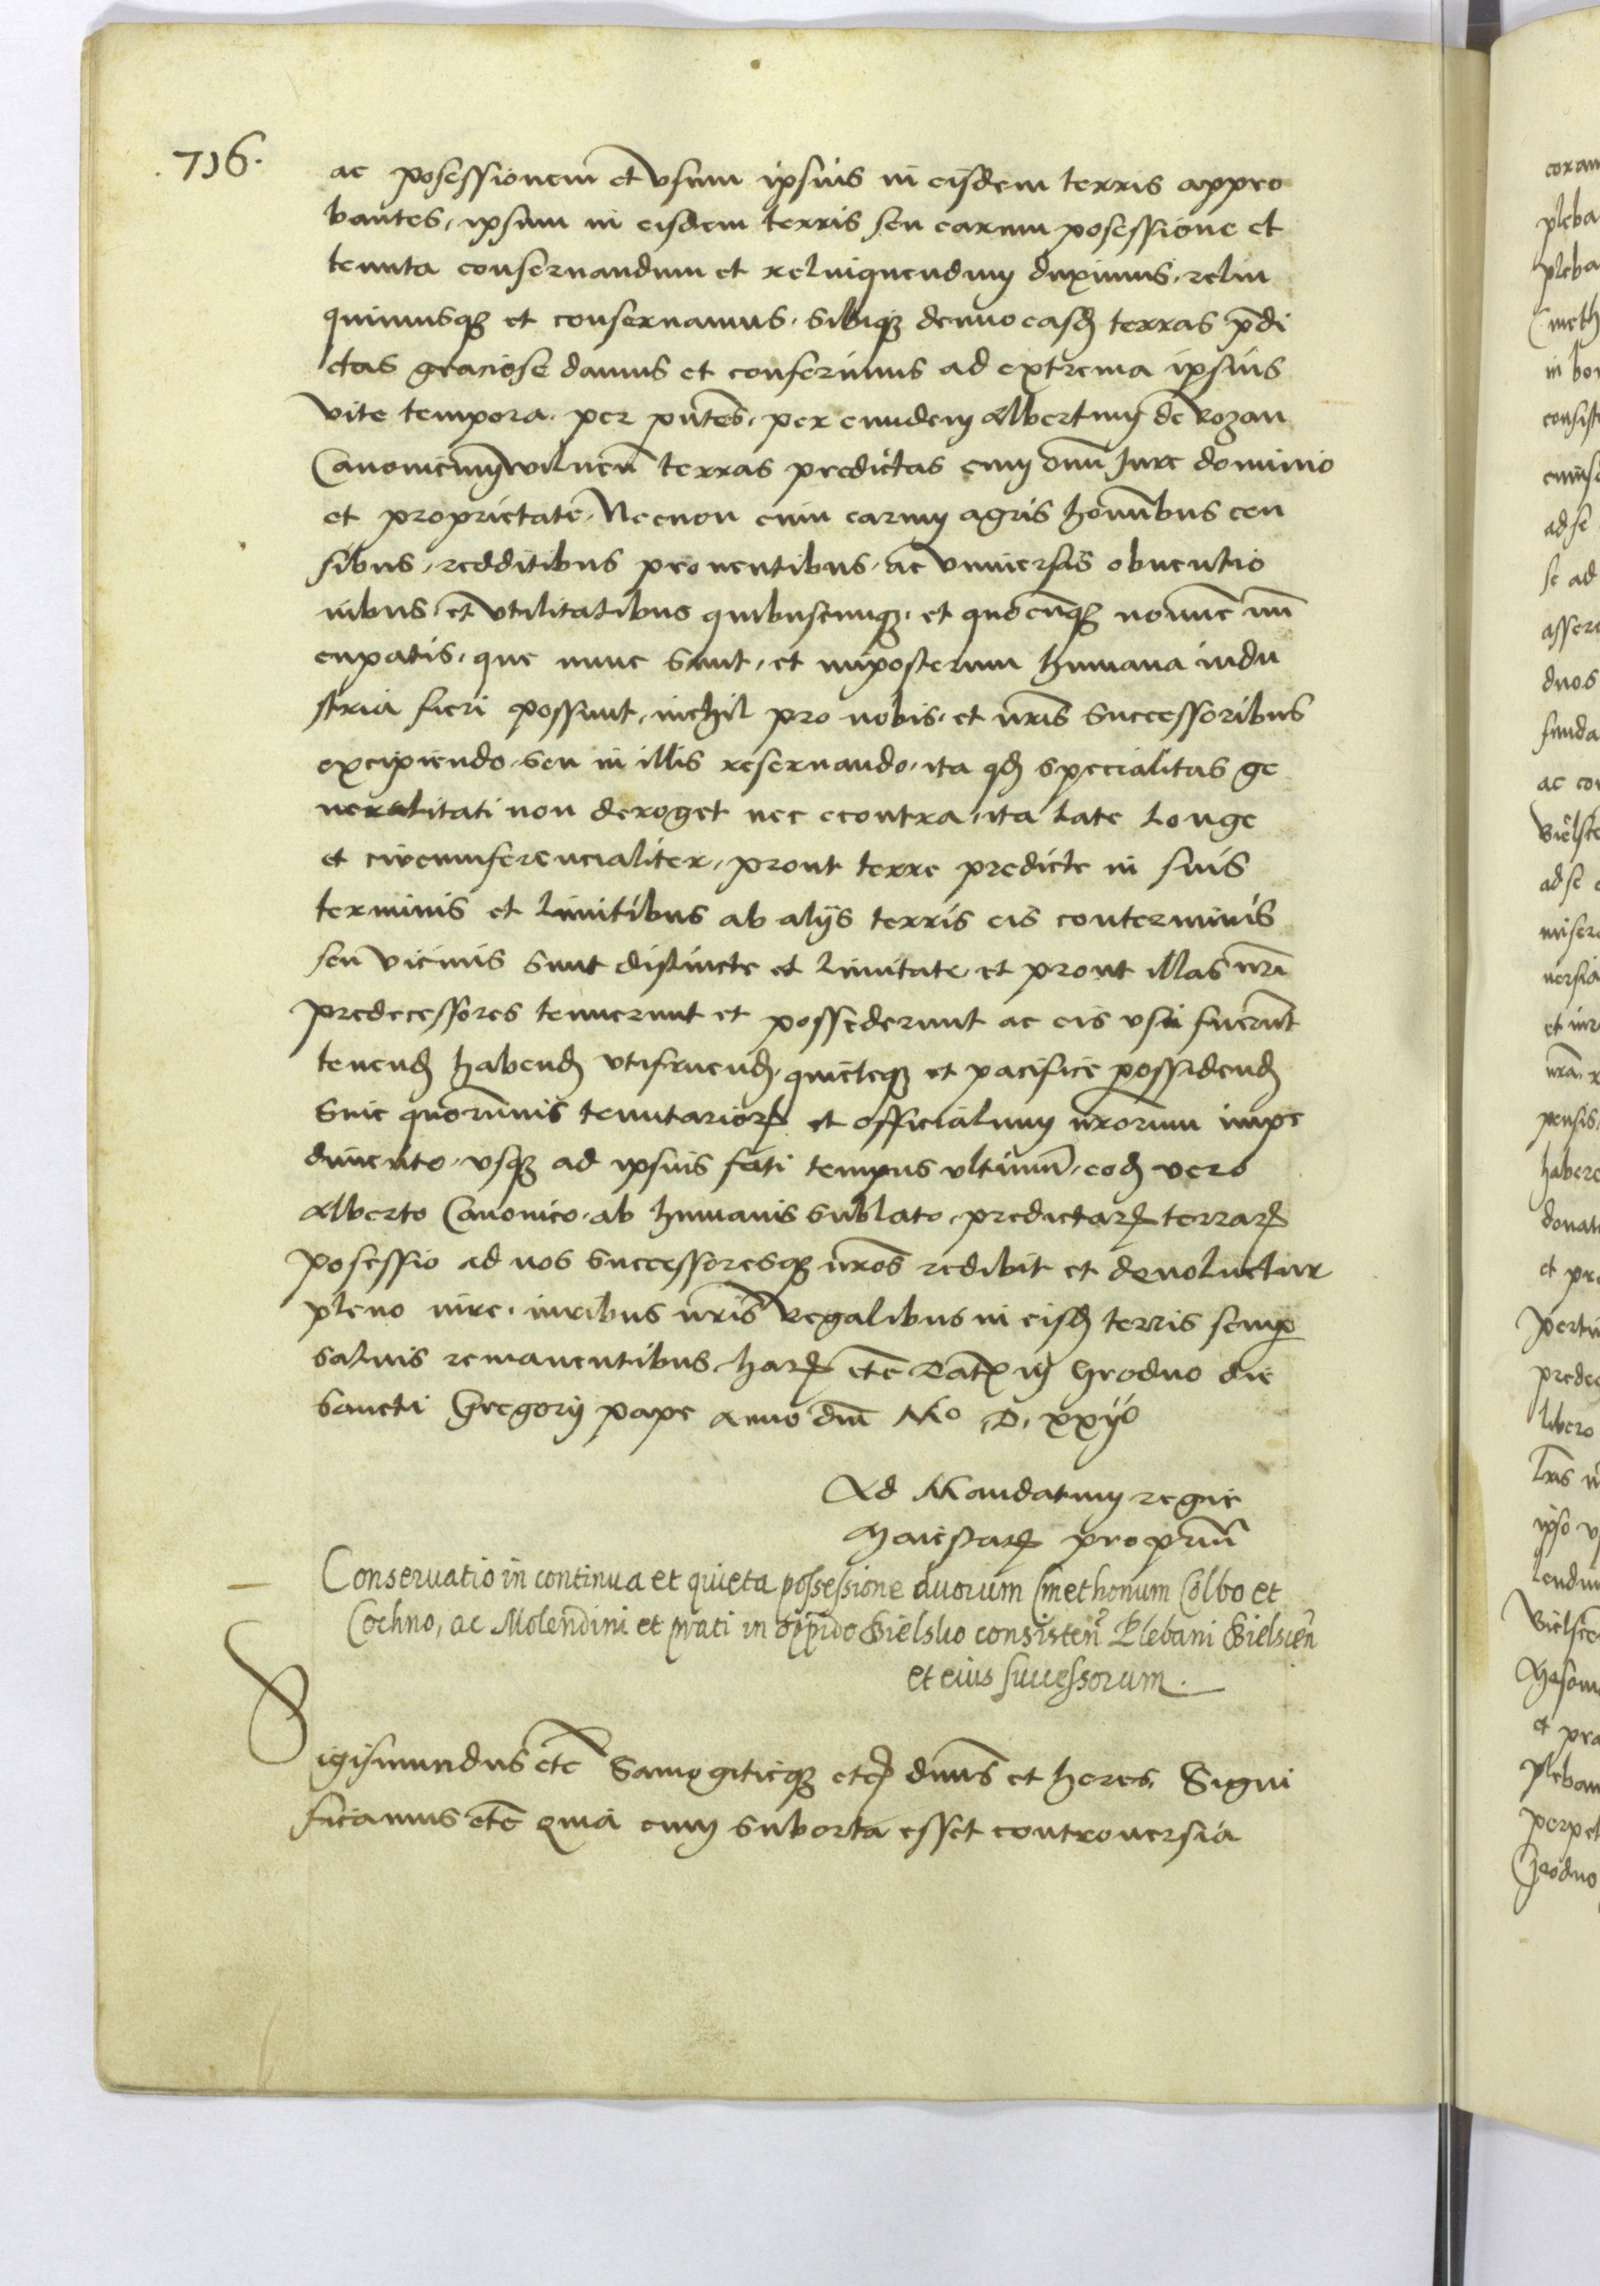 .716.
ac posessionem et vsum ipsius in eisdem terris appro
bantes, ipsum in eisdem terris seu earum posessione et
tenuta conseruandum et relinquendum duximus, relin
quimusqꝫ et conseruamus, Sibiqꝫ denuo easdꝫ terras p̄di
ctas graciose damus et conferimus ad extrema ipsius
vite tempora, per pn̄tes, per eundem Albertum de Rozan
Canonicum wilnen̄ terras predictas cum omi Iure dominio
et proprietate, Necnon cum earum agris hominibus cen
sibus, redditibus prouentibus, ac vniuersis obuentio
nibus, et vtilitatibus quibuscunqꝫ, et quocunqꝫ nomine nun
cupatis, que nunc sunt, et imposterum humana indu
stria fieri possunt, nichil pro nobis, et nr̄is Successoribus
excipiendo, seu in illis reseruando, ita qđ specialitas ge
neralitati non deroget nec econtra, ita late longe
et circumferencialiter, prout terre predicte in suis
terminis et limitibus ab alijs terris eis conterminis
seu vicinis sunt distincte et limitate, et prout illas nr̄i
predecessores tenuerunt et possederunt ac eis vsi fuerunt
tenendꝫ habendꝫ vtifruendꝫ, quieteqꝫ et pacifice possidendꝫ
Sine quorumuis tenutariorꝝ et officialium nr̄orum impe
dimento, vsqꝫ ad ipsius fati tempus vltimum, eodꝫ vero
Alberto Canonico, ab humanis sublato, predictarꝝ terrarꝝ
posessio ad nos successoresqꝫ nr̄os redibit et deuoluetur
pleno iure, iuribus nr̄is Regalibus in eisdꝫ terris semp
saluis remanentibus, harꝝ etc̄ Datꝫ in Grodno die
Sancti Gregorij pape Anno dni Mo .D. xxijo
Ad Mandatum regie
Maiestatꝫ proprium
Conseruatio in continua et quieta possessione duorum Cmethonum Colbo et
Cochno, ac Molendini et prati in oppido Bielsko consisten̄ Plebani Bielscen̄
et eius successorum.
Sigismundus etc̄ Samogitieqꝫ etcꝫ dnus et heres, Signi
ficamus etc̄ Quia cum suborta esset controuersia